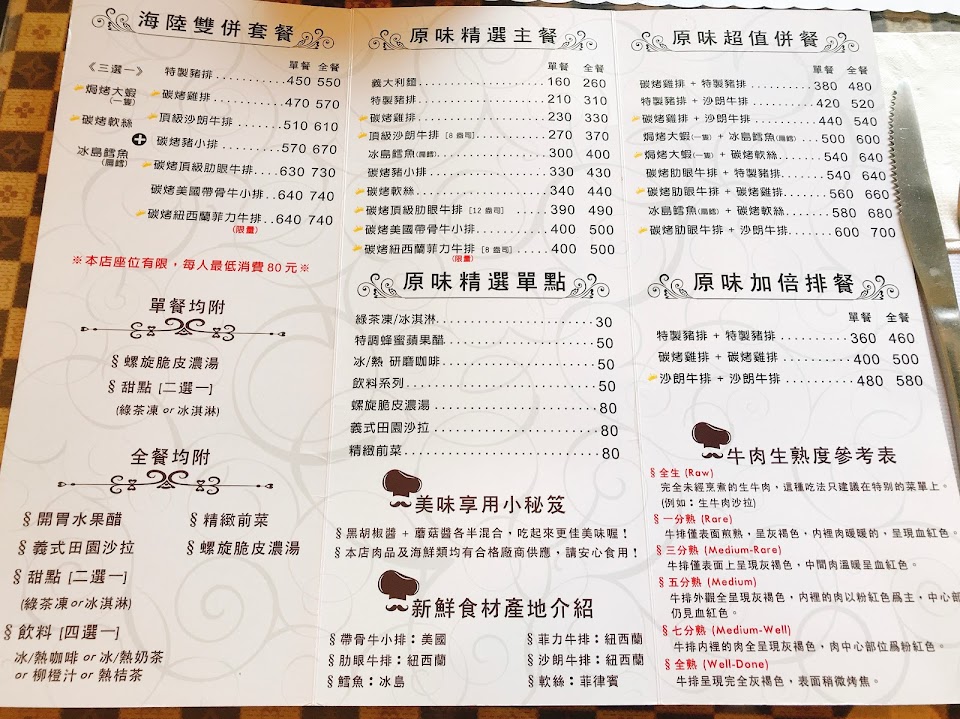 海陸雙併套餐
單餐 全餐
《三選一》 特製豬排 450 550
焗烤大蝦(一隻) 碳烤雞排 470 570
碳烤軟絲 頂級沙朗牛排 510 610
+ 碳烤豬小排 570 670
冰島鱈魚(扁鱈) 碳烤頂級肋眼牛排 630 730
碳烤美國帶骨牛小排 640 740
碳烤紐西蘭菲力牛排 640 740
(限量)
※本店座位有限，每人最低消費80元※
單餐均附
§螺旋脆皮濃湯
§甜點 [二選一]
(綠茶凍 or 冰淇淋)
全餐均附
§開胃水果醋 §精緻前菜
§義式田園沙拉 §螺旋脆皮濃湯
§甜點 [二選一]
(綠茶凍 or 冰淇淋)
§飲料 [四選一]
冰/熱咖啡 or 冰/熱奶茶
or 柳橙汁 or 熱桔茶
原味精選主餐
單餐 全餐
義大利麵 160 260
特製豬排 210 310
碳烤雞排 230 330
頂級沙朗牛排 [8 盎司] 270 370
冰島鱈魚(扁鱈) 300 400
碳烤豬小排 330 430
碳烤軟絲 340 440
碳烤頂級肋眼牛排 [12 盎司] 390 490
碳烤美國帶骨牛小排 400 500
碳烤紐西蘭菲力牛排 [8 盎司] 400 500
(限量)
原味精選單點
綠茶凍/冰淇淋 30
特調蜂蜜蘋果醋 50
冰/熱 研磨咖啡 50
飲料系列 50
螺旋脆皮濃湯 80
義式田園沙拉 80
精緻前菜 80
美味享用小秘笈
§黑胡椒醬 + 蘑菇醬各半混合，吃起來更佳美味喔！
§本店肉品及海鮮類均有合格廠商供應，請安心食用！
新鮮食材產地介紹
§帶骨牛小排：美國 §菲力牛排：紐西蘭
§肋眼牛排：紐西蘭 §沙朗牛排：紐西蘭
§鱈魚：冰島 §軟絲：菲律賓
原味超值併餐
單餐 全餐
碳烤雞排 + 特製豬排 380 480
特製豬排 + 沙朗牛排 420 520
碳烤雞排 + 沙朗牛排 440 540
焗烤大蝦(一隻) + 冰島鱈魚(扁鱈) 500 600
焗烤大蝦(一隻) + 碳烤軟絲 540 640
碳烤肋眼牛排 + 特製豬排 540 640
碳烤肋眼牛排 + 碳烤雞排 560 660
冰島鱈魚(扁鱈) + 碳烤軟絲 580 680
碳烤肋眼牛排 + 沙朗牛排 600 700
原味加倍排餐
單餐 全餐
特製豬排 + 特製豬排 360 460
碳烤雞排 + 碳烤雞排 400 500
沙朗牛排 + 沙朗牛排 480 580
牛肉生熟度參考表
§全生 (Raw)
完全未經烹煮的生牛肉，這種吃法只建議在特別的菜單上。
(例如：生牛肉沙拉)
§一分熟 (Rare)
牛排僅表面煎熟，呈灰褐色，內裡肉暖暖的，呈現血紅色。
§三分熟 (Medium-Rare)
牛排僅表面上呈現灰褐色，中間肉溫暖呈血紅色。
§五分熟 (Medium)
牛排外觀全呈現灰褐色，內裡的肉以粉紅色為主，中心部
仍見血紅色。
§七分熟 (Medium-Well)
牛排內裡的肉全呈現灰褐色，肉中心部位為粉紅色。
§全熟 (Well-Done)
牛排呈現完全灰褐色，表面稍微烤焦。